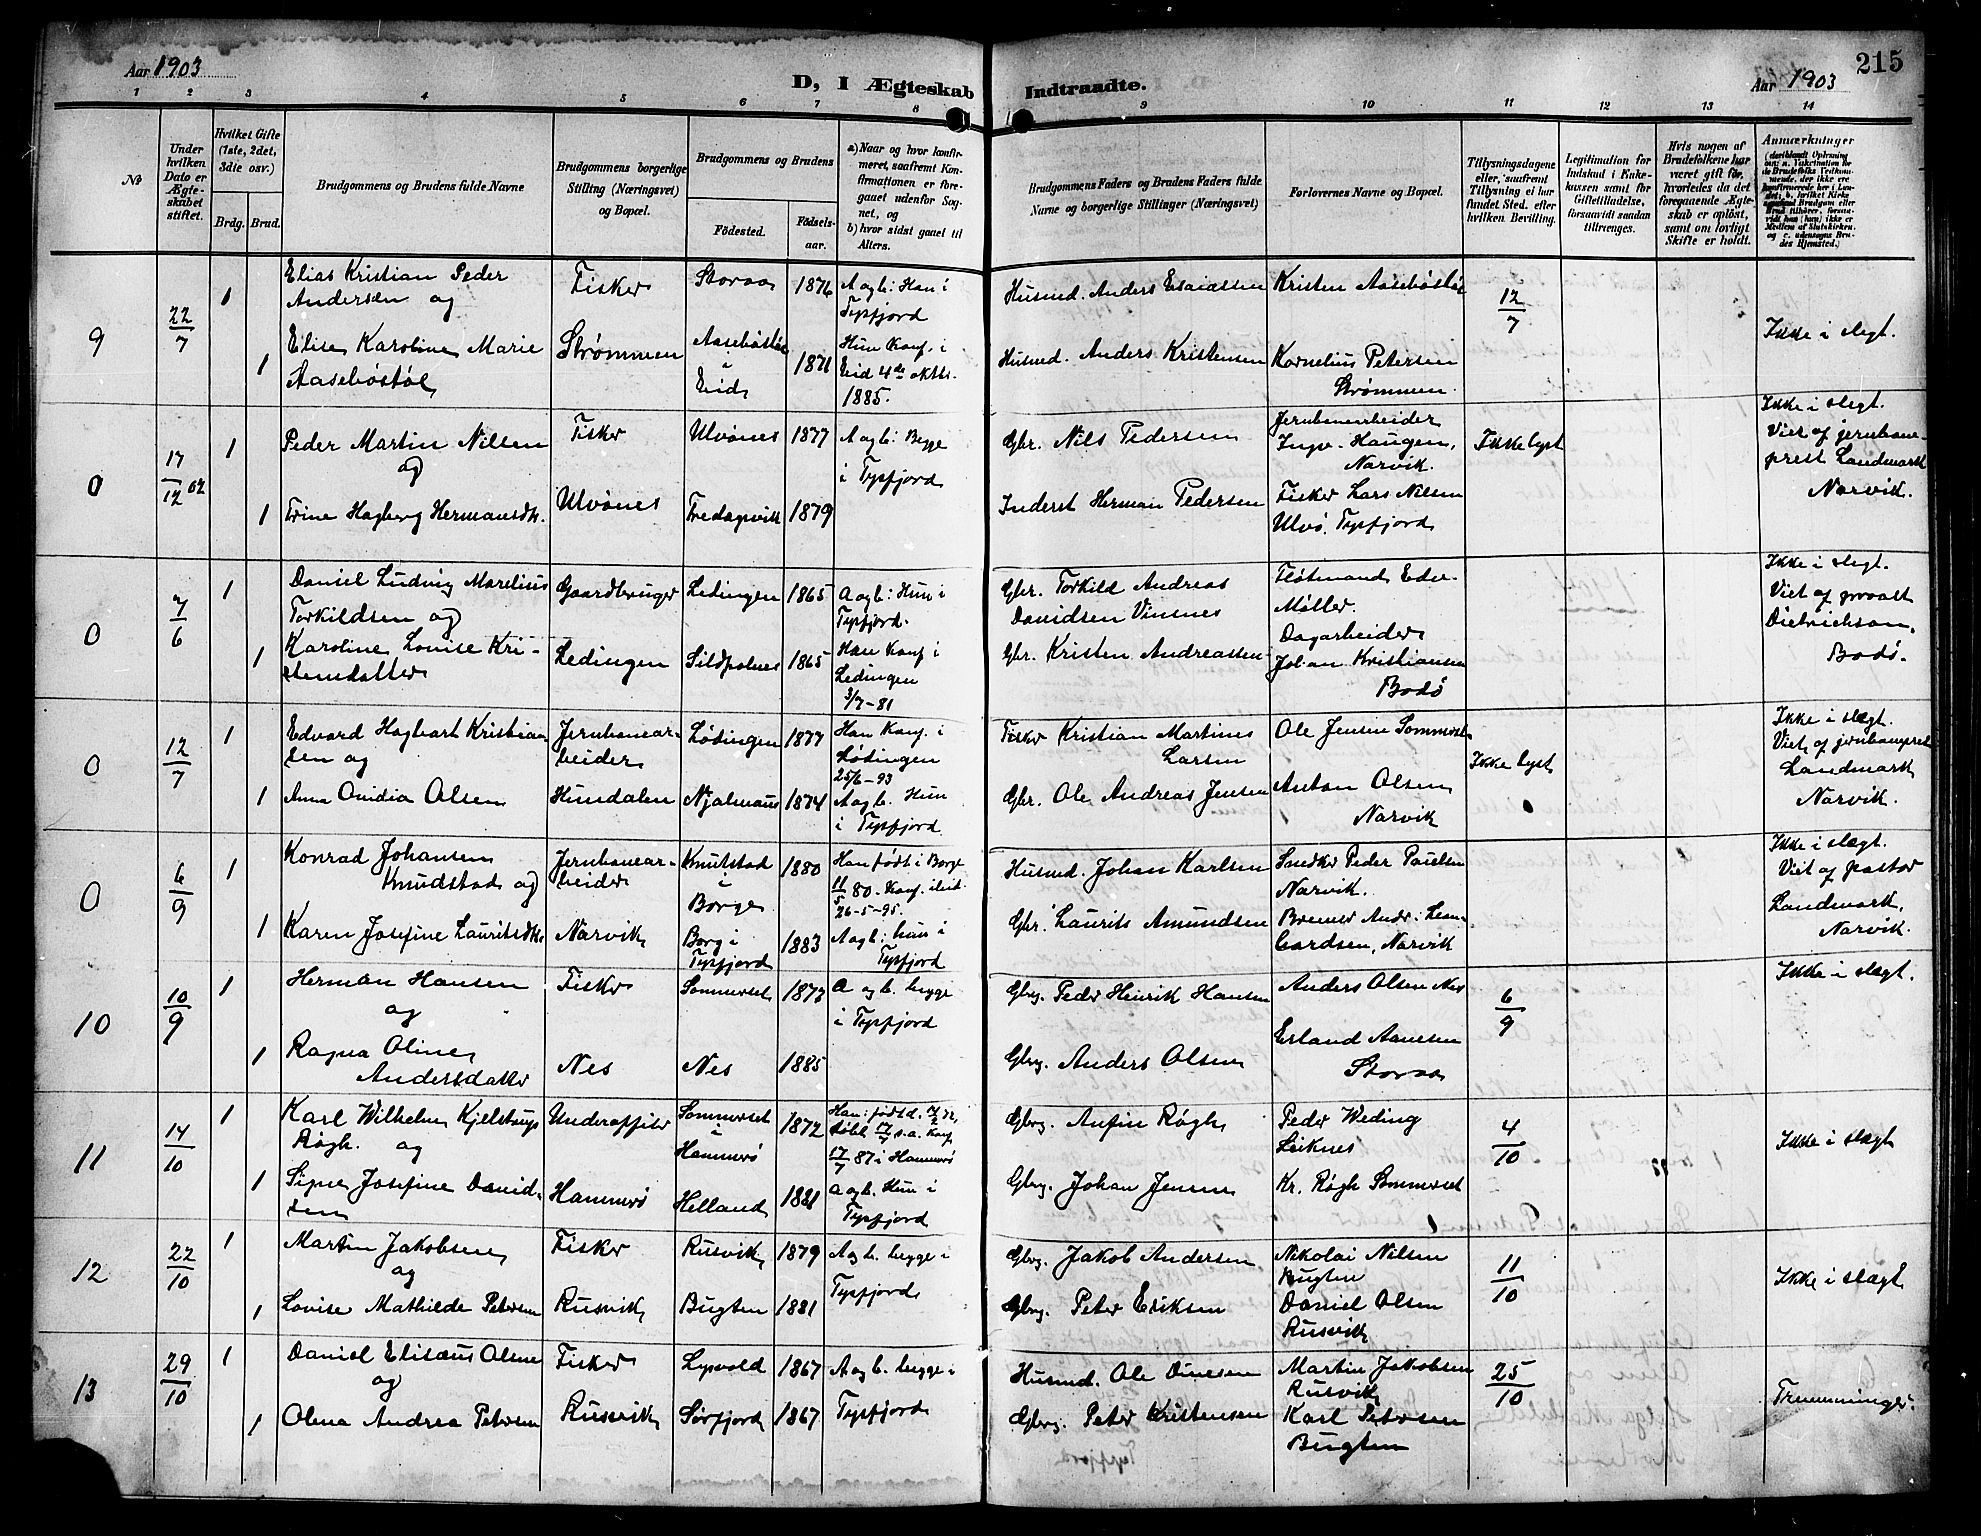 215
Aar 1903
D, I Ægteskab Indtraadte.
Aar 1903
1 2 3 4 5 6 7 8 9 10 11 12 13 14
№
Under hvilken Dato er Ægteskabet stiftet.
Hvilket Gifte (1ste, 2det, 3die osv.)
Brdg. Brud.
Brudgommens og Brudens fulde Navne
Brudgommens borgerlige Stilling (Næringsvei) og Bopæl.
Brudgommens og Brudens
Fødested.
Fødselsaar.
a) Naar og hvor konfirmeret, saafremt Konfirmationen er foregaaet udenfor Sognet, og
b) hvor sidst gaaet til Alters.
Brudgommens Faders og Brudens Faders fulde Navne og borgerlige Stillinger (Næringsvei)
Forlovernes Navne og Bopæl.
Tillysningsdagene eller, saafremt Tillysning ei har fundet Sted, efter hvilken Bevilling.
Legitimation for Indskud i Enkekassen samt for Giftetilladelse, forsaavidt saadan tiltrænges.
Hvis nogen af Brudefolkene har været gift før, hvorledes da det foregaaende Ægteskab er opløst, samt om lovligt Skifte er holdt.
Anmærkninger
9 22/7 1 Elias Kristian Peder Andersen og Fisker Storaa 1876 A og b: Han i Tysfjord Husmd. Anders Esaiassen Kristen Aasebøstøl 12/7 Ikke i slegt.
1 Elise Karoline Marie Aasebøstøl Strømmen Aasebøstøl i Eid 1871 Hun Konf. i Eid 4de oktbr. 1885. Husmd. Anders Kristensen Kornelius Petersen Strømmen.
0 17/12 02 1 Peder Martin Nilsen og Fisker Ulvønes 1877 A og b: Begge i Tysfjord Gbr. Nils Pedersen Jernbanearbeider Ingv. Haugen, Narvik. Ikke lyst Ikke i slegt. Viet af jernbaneprest Landmark Narvik.
1 Trine Hagberg Hermansdtr. Ulvønes Fredagsvik 1879 Inderst Herman Pedersen Fisker Lars Nilsen Ulvø, Tysfjord
0 7/6 1 Daniel Ludvig Marelius Torkildsen og Gaardbruger Lødingen 1865 A og b: Hun i Tysfjord. Gbr. Torkild Andreas Davidsen Vinnes Fløtmand Eder Møller. Ikke i slegt. Viet af provst Dietrichson, Bodø.
1 Karoline Lovise Kristensdatter Lødingen Sildpolnes 1865 Han Konf i Lødingen 3/7-81 Gbr. Kristen Andreassen Dagarbeider Johan Kristiansen Bodø
0 12/7 1 Edvard Hagbart Kristiansen og Jernbanearbeider Lødingen 1877 Han Konf. i Lødingen 25/6-93 Fisker Kristian Martines Larsen Ole Jensen Sommerset Ikke lyst Ikke i slægt. Viet af jernbaneprest Landmark Narvik.
1 Anna Ovidia Olsen Hundalen Njalmaus 1874 A og b. Hun i Tysfjord Gbr. Ole Andreas Jensen Anton Olsen Narvik
0 6/9 1 Konrad Johansen Knudstad og Jernbanearbeider Knutstad i Borge 1880 Han født i Borge 11/5 80. Konf. ibid. 26-5-95. Husmd. Johan Karlsen Snedker Peder Paulsen Narvik. Ikke i slægt. Viet af pastor Landmark, Narvik.
1 Karen Josefine Lauritsdtr. Narvik Borg i Tysfjord 1883 A og b: hun i Tysfjord Gbr. Laurits Amundsen Bremser Andr: Leonhardsen, Narvik
10 10/9 1 Herman Hansen og Fisker Sommerset 1877 A og b. begge i Tysfjord Gbrg. Peder Henrik Hansen Anders Olsen Nes 6/9 Ikke i slægt.
1 Ragna Oline Andersdatter Nes Nes 1885 Gbrg. Anders Olsen Erland Aanesen Storaa
11 14/10 1 Karl Wilhelm Kjelstrup Røgh. og Underofficer Sommerset i Hammerø 1872 Han: født d. 7/2 72, døbt 17/7 s.a. Konf. 17/7 87 i Hammerø Gbrg. Anfin Røgh Peder Weding Leiknes 4/10 Ikke i slægt
1 Signe Josefine Davidsen Hammerø Helland 1881 A og b. Hun i Tysfjord Gbrg. Johan Jensen Kr. Røgh Sommerset
12 22/10 1 Martin Jakobsen og Fisker Rusvik 1879 A og b. begge i Tysfjord Gbrg. Jakob Andersen Nikolai Nilsen Bugten 11/10 Ikke i slægt
1 Lovise Mathilde Petersen Rusvik Bugten 1881 Gbrg. Peter Eriksen Daniel Olsen Rusvik
13 29/10 1 Daniel Elisæus Olsen og Fisker Lysvold 1867 A og b. begge i Tysfjord Husmd. Ole Ounesen Martin Jakobsen Rusvik 25/10 Tremenninger.
1 Olina Andrea Petersen Russvik Sørfjord 1867 Gbrg. Peter Kristensen Karl Petersen Bugten